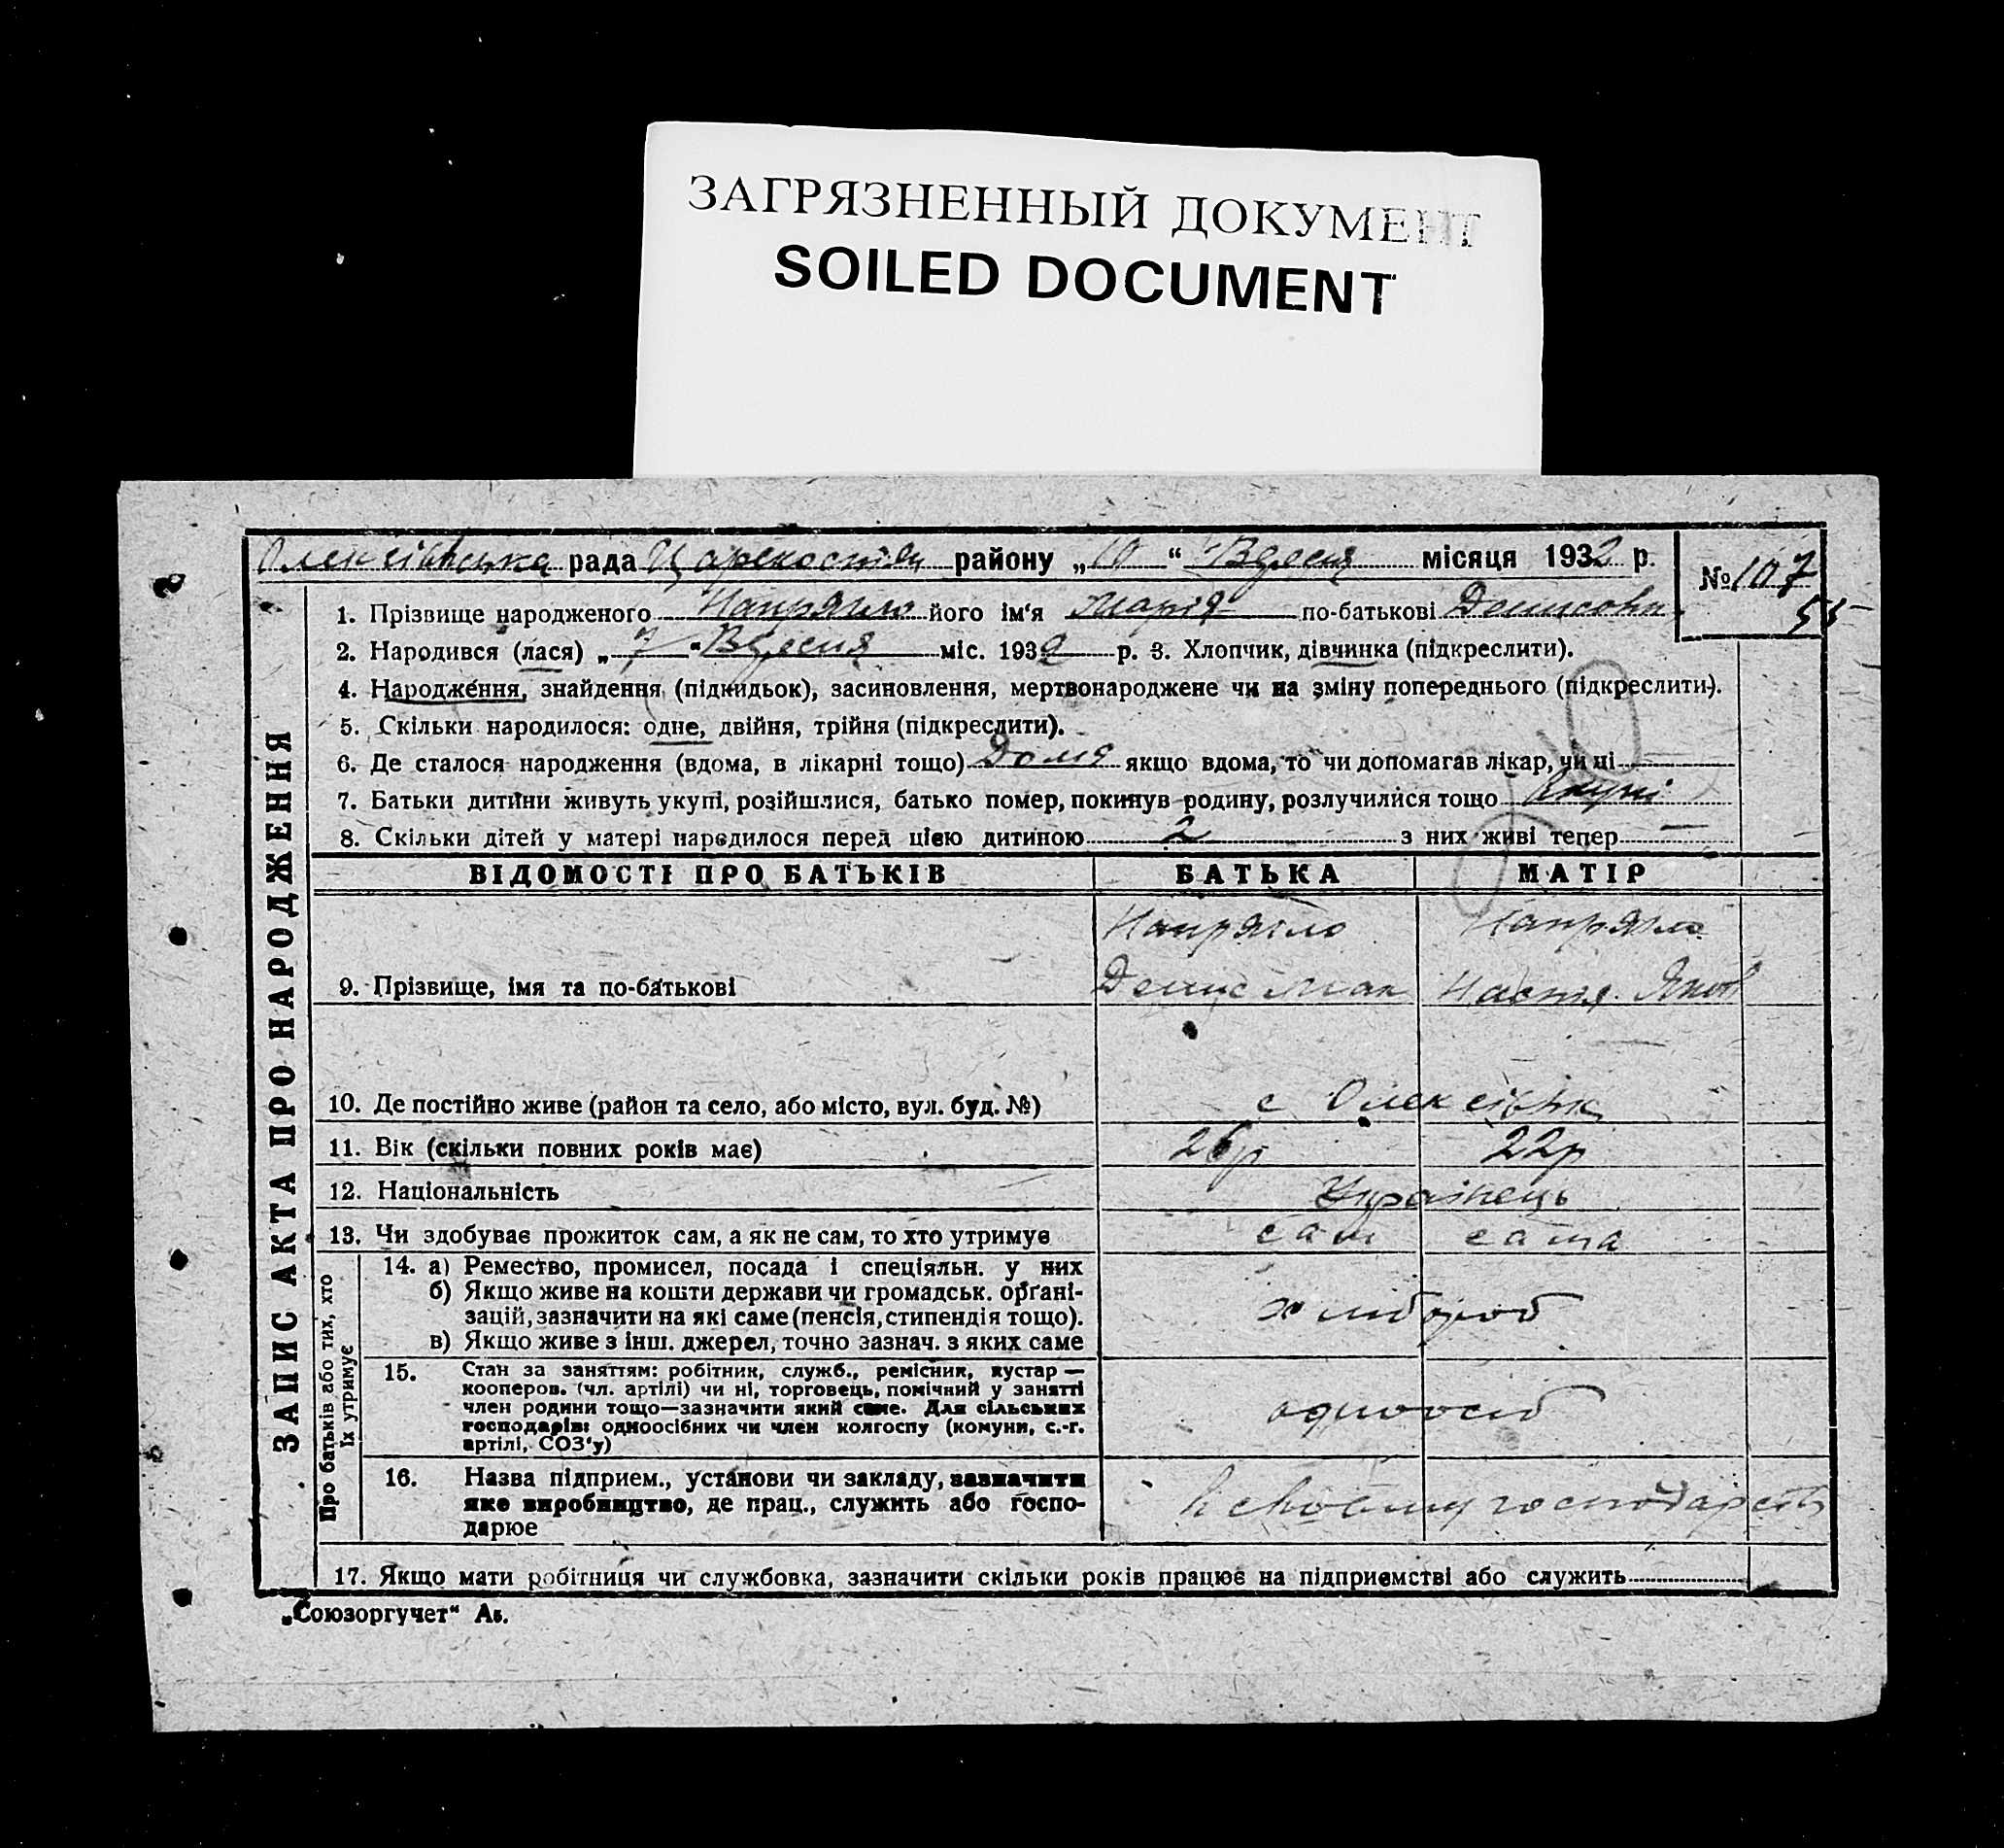 ЗАГРЯЗНЕННЫЙ ДОКУМЕНТ
SOILED DOCUMENT
Олексіївська рада района „10“ Вересня місяця 1932 р.
№ 107
55
ЗАПИС АКТА ПРО НАРОДЖЕННЯ
1. Прізвище народженого Напрягло його ім'я Марія по-батькові Денисовн
2. Народився (лася) „7“ Вересня міс. 1932 р. 3. Хлопчик, дівчинка (підкреслити).
4. Народження, знайдення (підкидьок), засиновлення, мертвонароджене чи на зміну попереднього (підкреслити).
5. Скільки народилося: одне, двійня, трійня (підкреслити).
6. Де сталося народження (вдома, в лікарні тощо) Дома якщо вдома, то чи допомагав лікар, чи ні —
7. Батьки дитини живуть укупі, розійшлися, батько помер, покинув родину, розлучилися тощо Вкупі
8. Скільки дітей у матері народилося перед цією дитиною 2 з них живі тепер —
ВІДОМОСТІ ПРО БАТЬКІВ БАТЬКА МАТІР
Напрягло Напрягло
9. Прізвище, імя та по-батькові Денис Мак Настя Яков
10. Де постійно живе (район та село, або місто, вул. буд. №) с Олексіївк
11. Вік (скільки повних років має) 26р 22р
12. Національність Українець
13. Чи здобуває прожиток сам, а як не сам, то хто утримує сам сама
Про батьків або тих, хто
їх утримує
14. а) Ремество, промисел, посада і спеціяльн. у них
б) Якщо живе на кошти держави чи громадськ. органі-
зацій, зазначити на які саме (пенсія, стипендія тощо). хлібороб
в) Якщо живе з інш. джерел, точно зазнач. з яких саме
15. Стан за заняттям: робітник, служб., ремісник, кустар —
кооперов. (чл. артілі) чи ні, торговець, помічний у занятті
член родини тощо—зазначити який саме. Для сільських
господарів: одноосібних чи член колгоспу (комуни, с.-г. одноосіб
артілі, СОЗ'у)
16. Назва підприєм., установи чи закладу, зазначити
яке виробництво, де прац., служить або госпо- в своєму господарств
дарює
17. Якщо мати робітниця чи службовка, зазначити скільки років працює на підприємстві або служить
„Союзоргучет“ Ав.